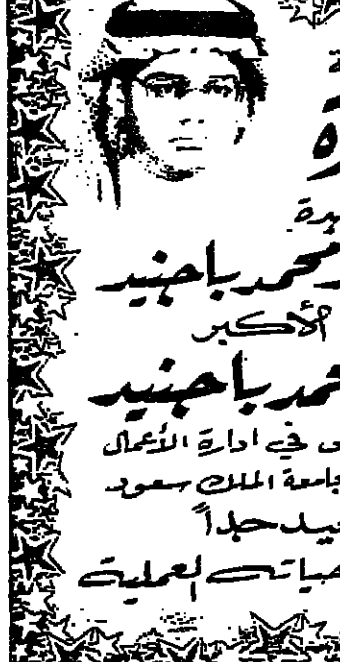 ة
ة
محمد باجنيد
الأكبر
محمد باجنيد
في ادارة الأعمال
جامعة الملك سعود
جيد جداً
حياته العملية